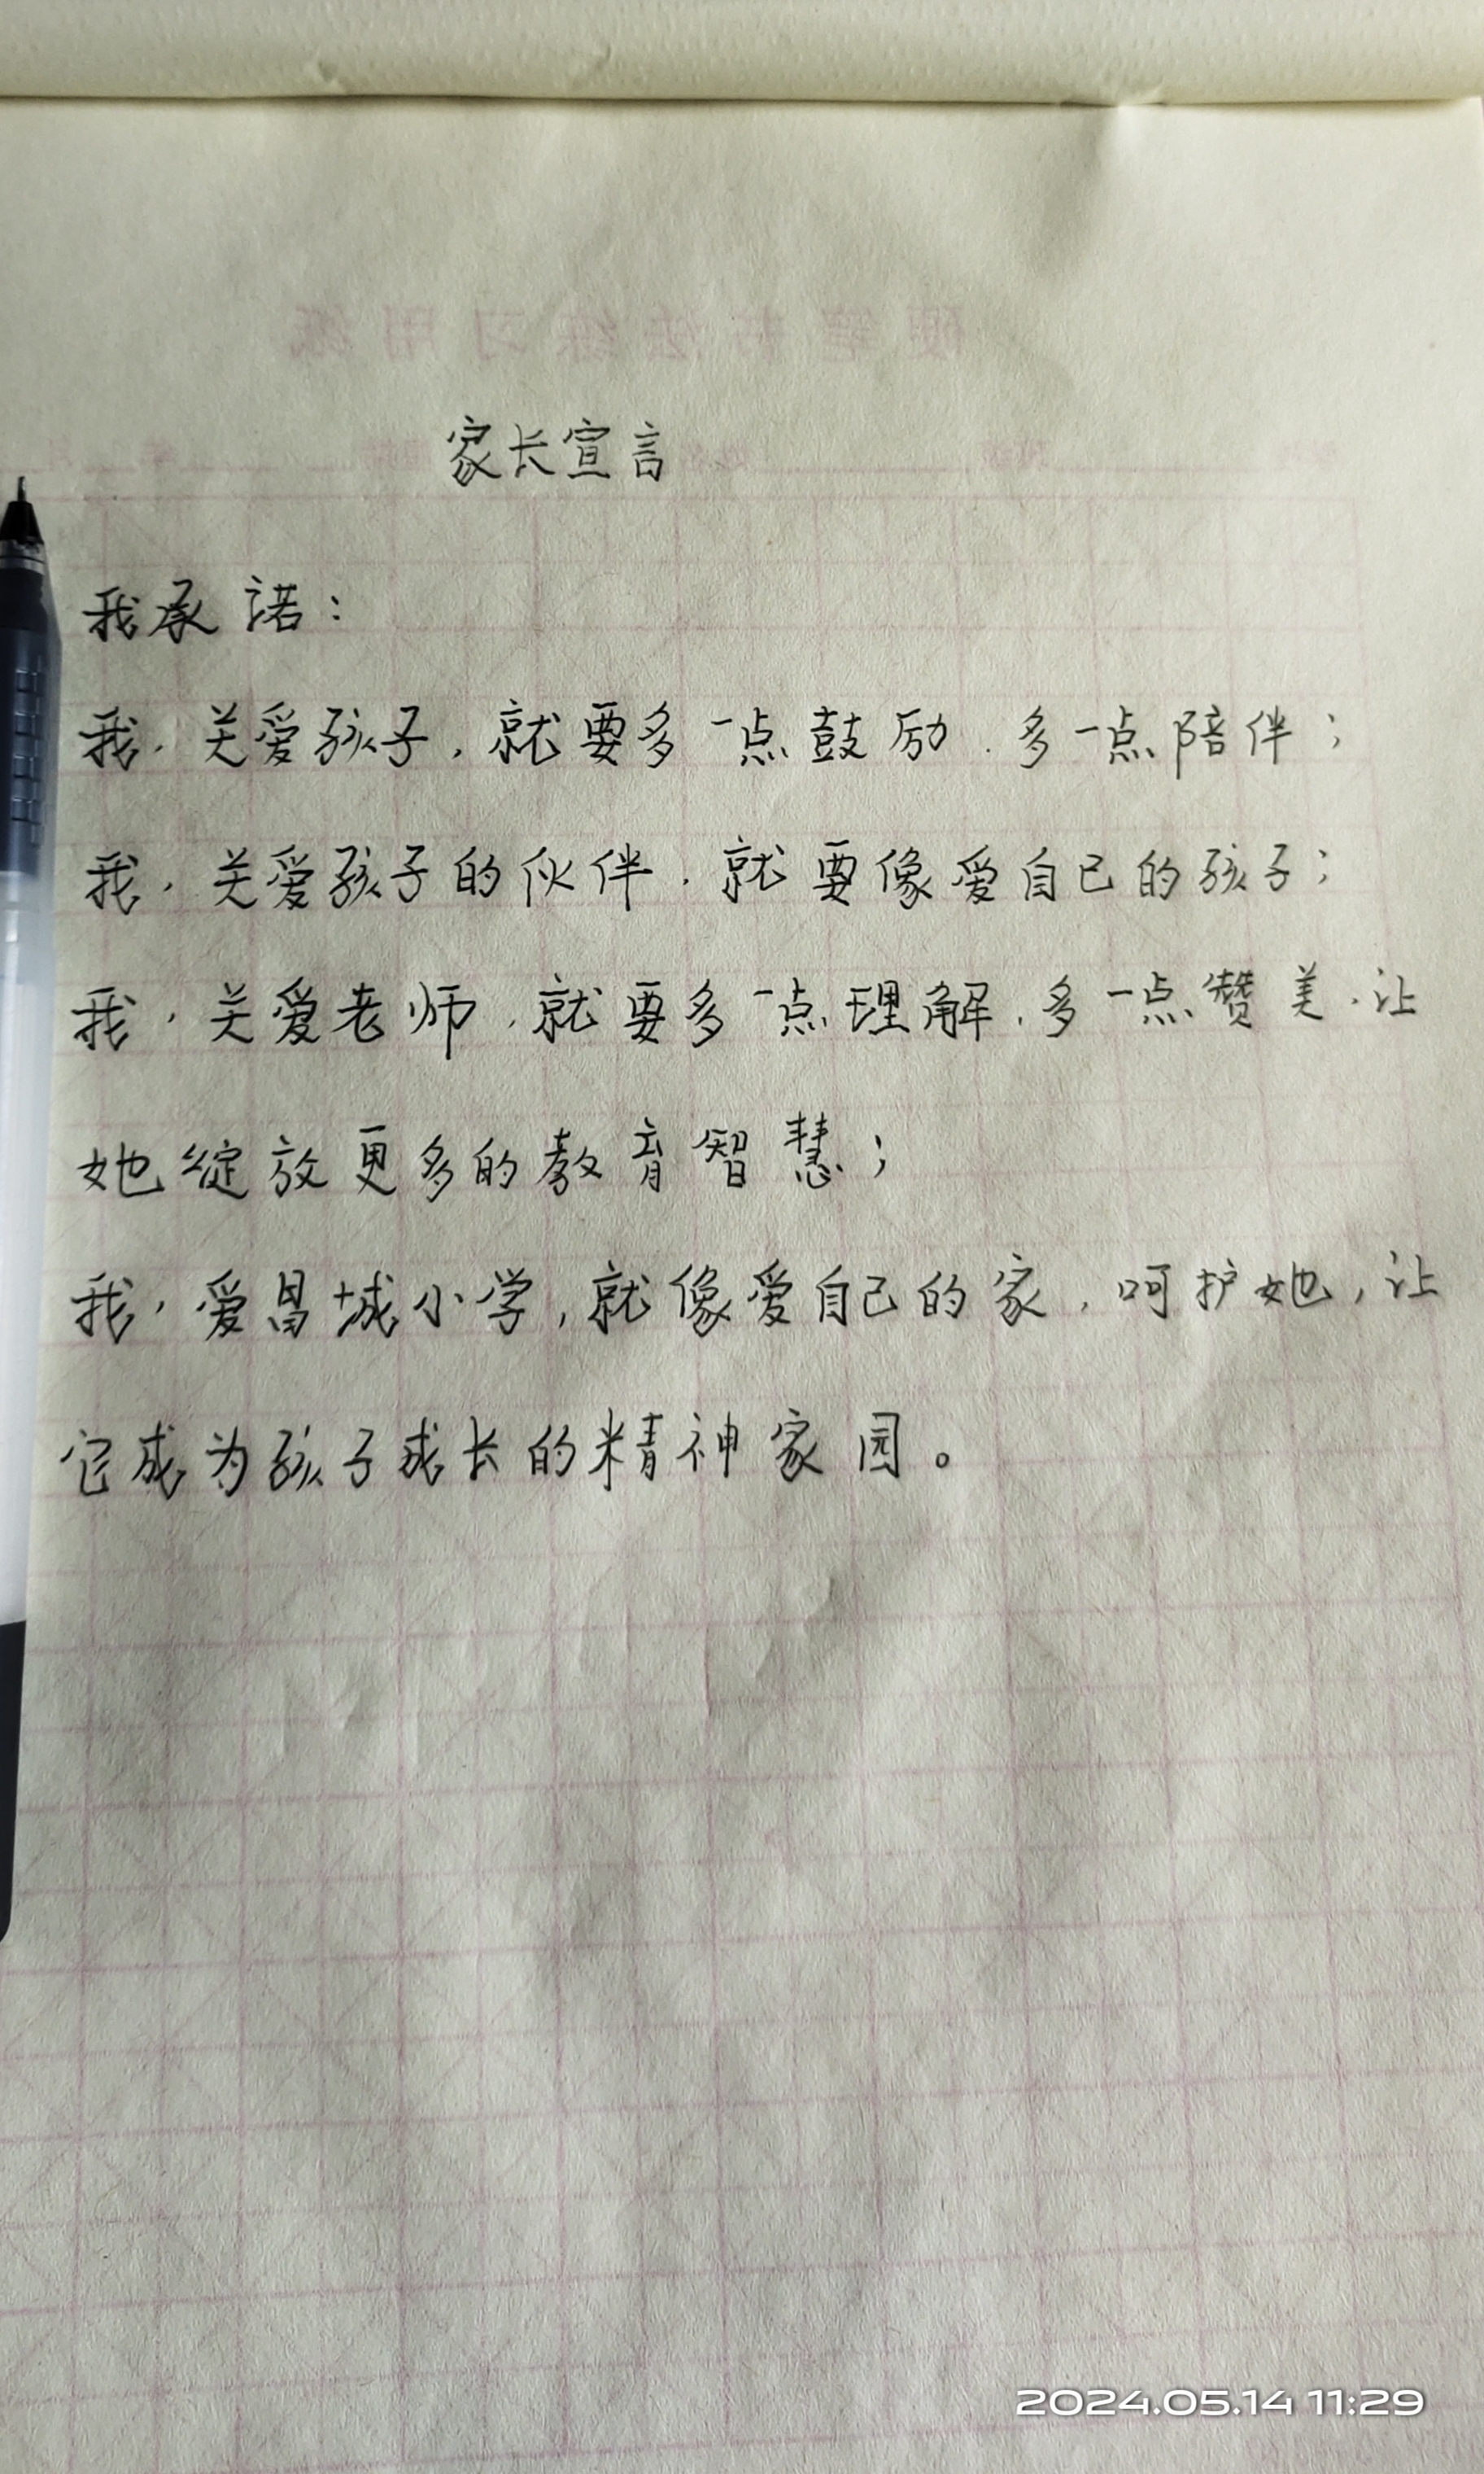 硬笔书法练习用纸
家长宣言
我承诺：
我，关爱孩子，就要多一点鼓励，多一点陪伴；
我，关爱孩子的伙伴，就要像爱自己的孩子；
我，关爱老师，就要多一点理解，多一点赞美，让
她绽放更多的教育智慧；
我，爱昌城小学，就像爱自己的家，呵护她，让
它成为孩子成长的精神家园。
2024.05.14 11:29